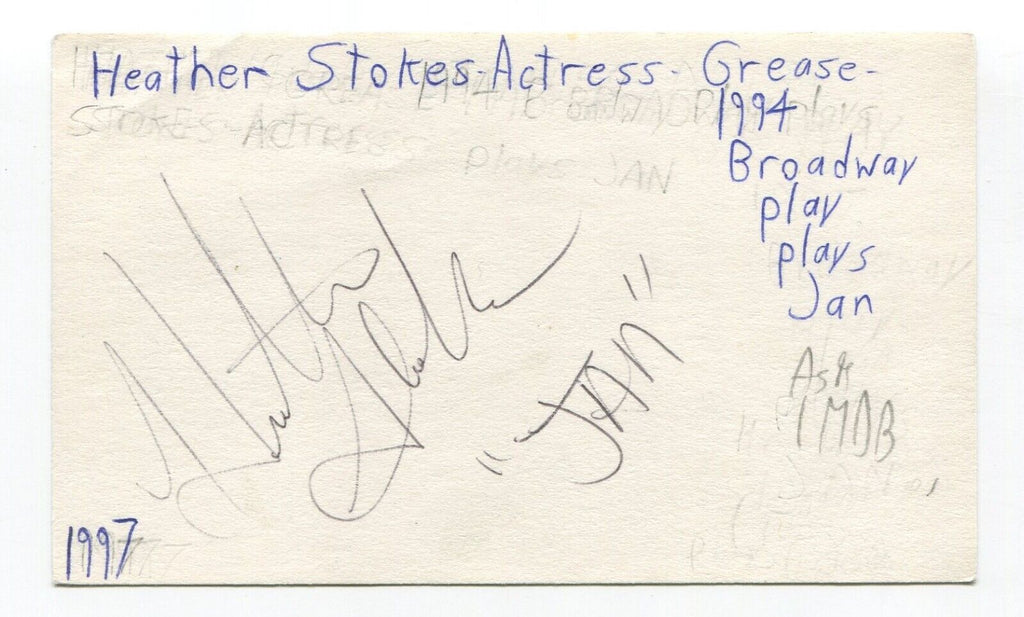 Heather Stokes-Actress- Grease-
1994
Broadway
play
plays
Jan
STOKES-ACTRESS
plays JAN
"JAN"
Ask
IMDB
1997